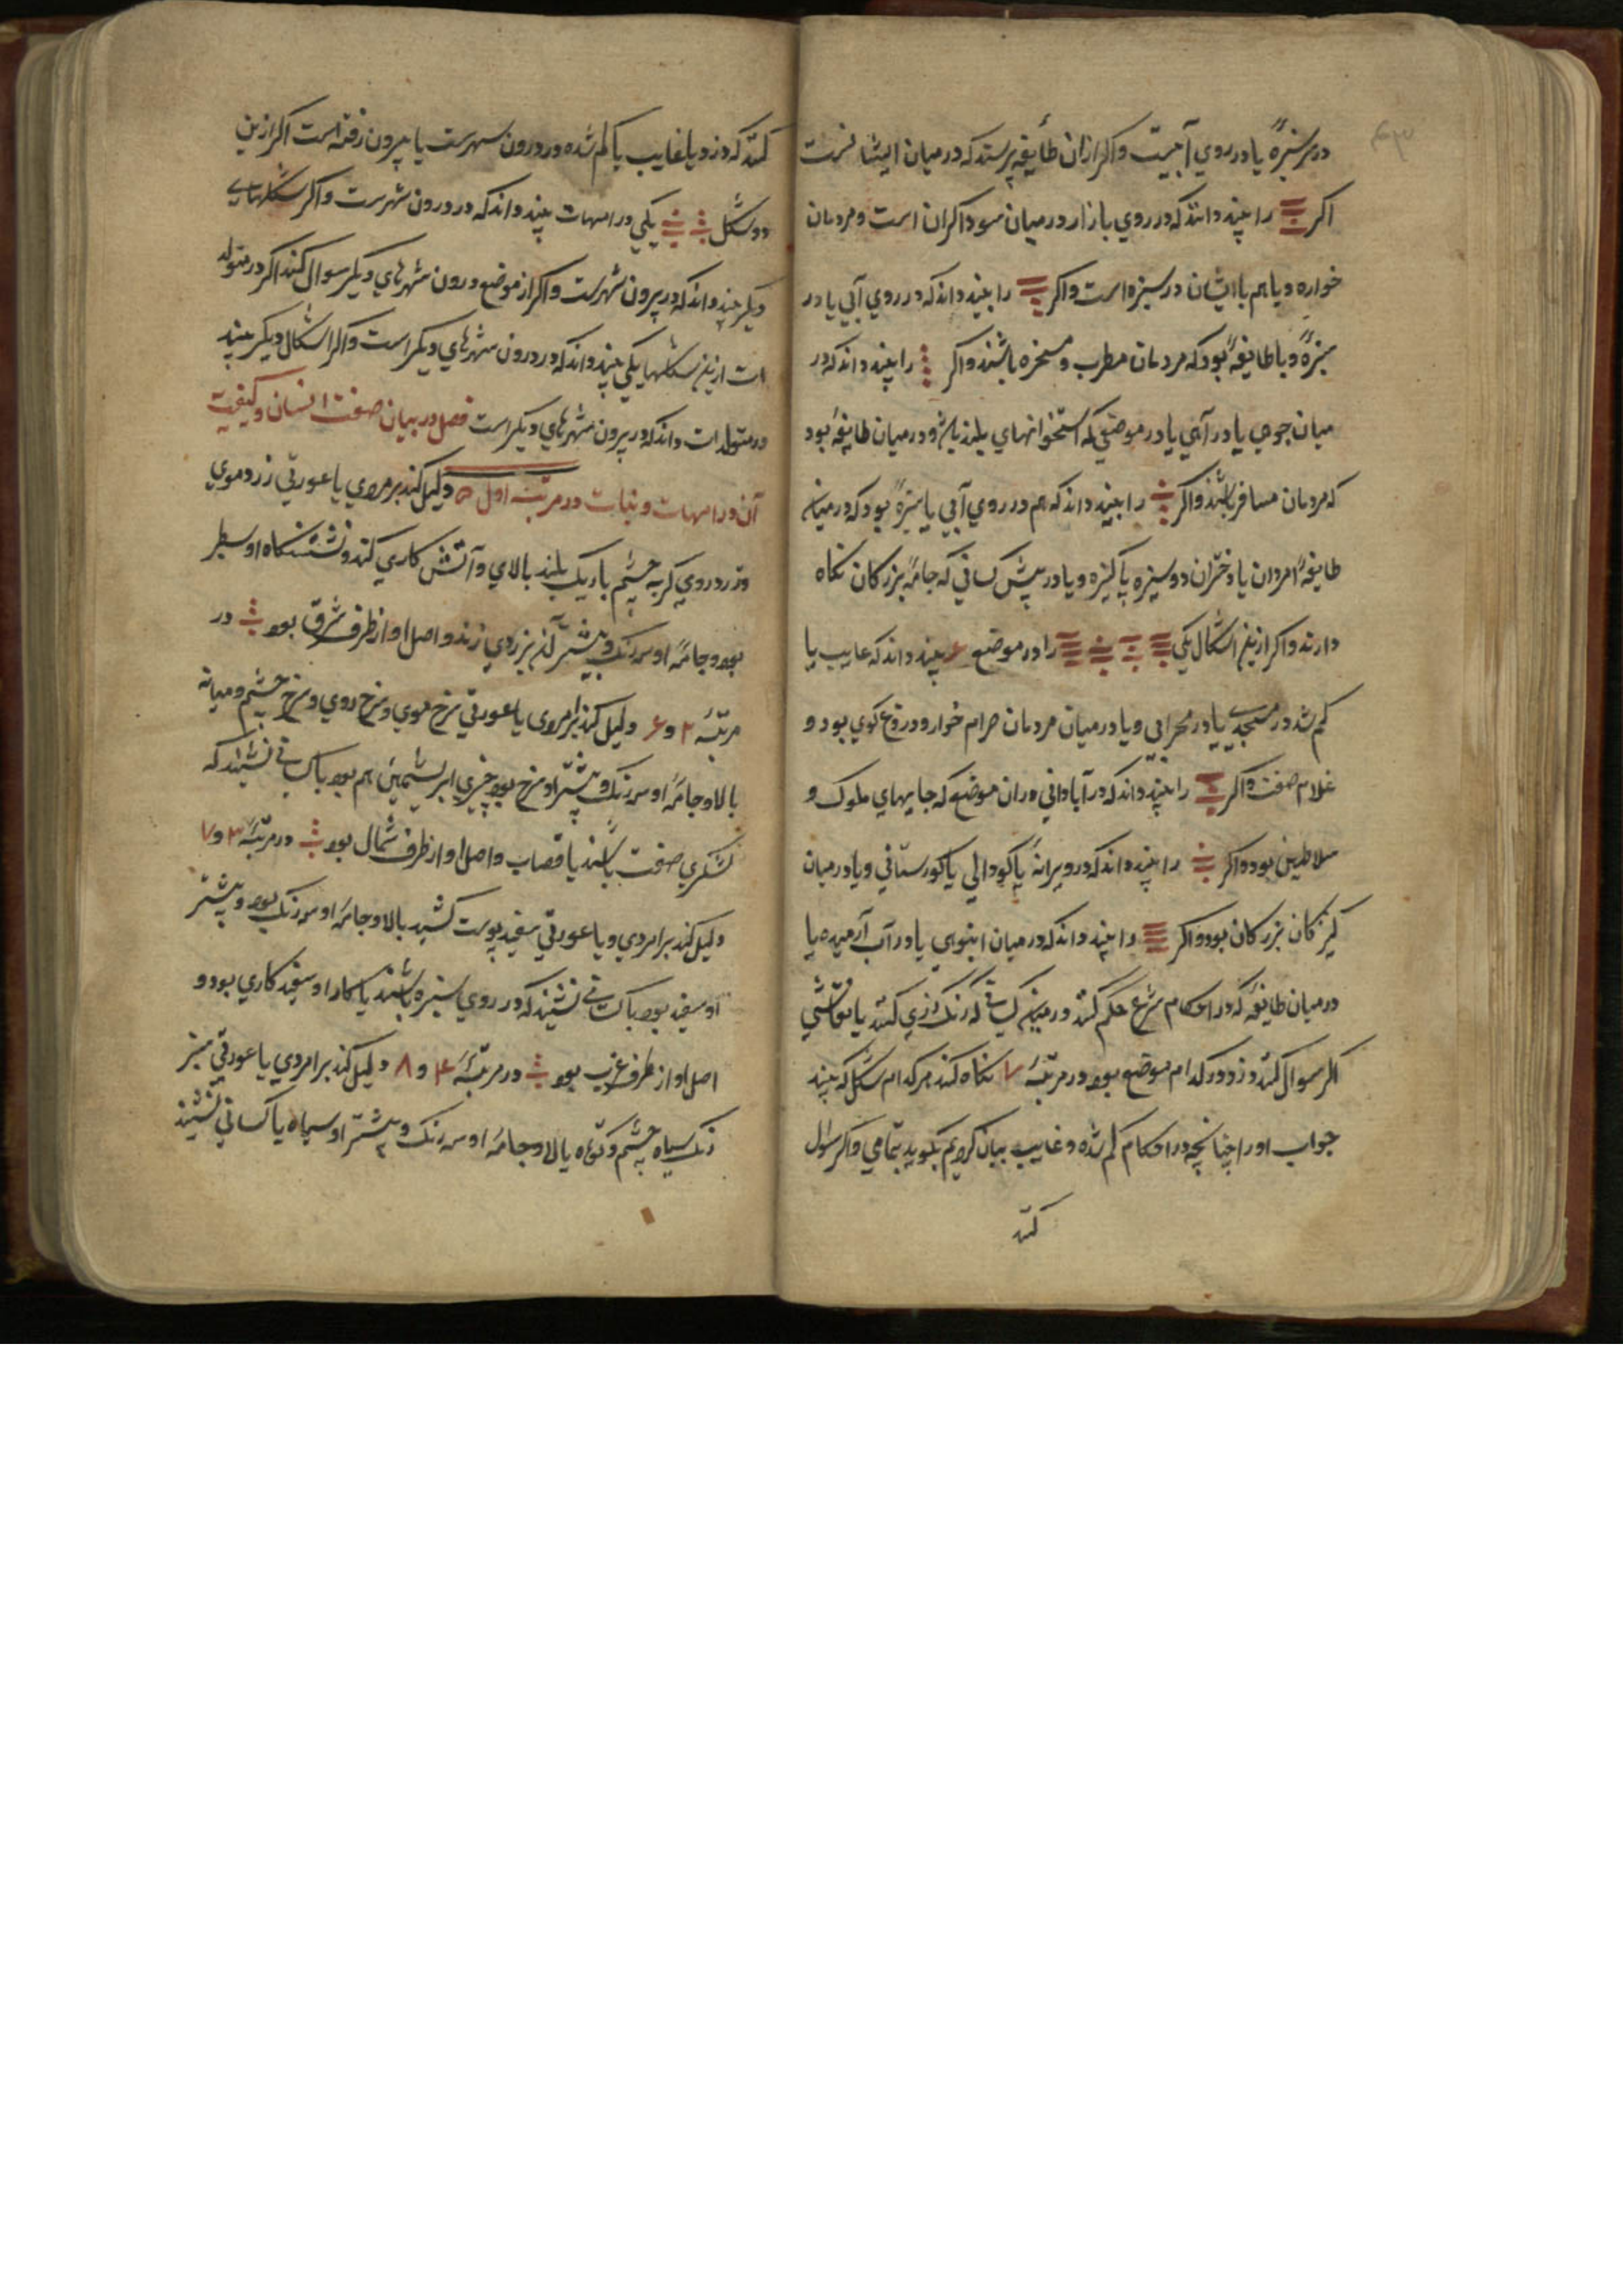 در سبزهٔ یا در روی آبیست واکر ازان طایفه پرسند که در میان ایشانست
اکر را بیند دانند که در روی بازار در میان سوداکران است و مردمان
خواره و یا هم با ایشان در سبزه است واکر را بیند داند که در روی آبی یا در
سبزهٔ و با طایفهٔ بود که مردمان مطرب و مسخره باشند واکر را بیند داند که در
میان جوی یا در آبی یا در موضعی که استخوانهای پلید و در میان طایفهٔ بود
که مردمان مسافر باشند واکر را بیند داند که هم در روی آبی یا سبزهٔ بود که در میان
طایفهٔ امردان یا دختران دوسیزه پاکیزه و یا در پیش کسانی که جامهٔ بزرکان نکاه
دارند واکر ازین اشکال یکی را در موضع ۶ بیند داند که غایب یا
کم شد در مسجدی یا در محرابی و یا در میان مردمان حرام خوار و دروغ کوی بود و
غلام صفت واکر را بیند داند که در آبادانی دران موضع که جایهای ملوک و
سلاطین بود واکر را بیند داند که در ویرانهٔ یا کودالی یا کورستانی و یا در میان
کنیزکان بزرکان بود واکر را بیند داند که در میان انبوهی یا در آب آرمیده یا
در میان طایفهٔ که در احکام شرع حکم کنند و در میان کسانی که رنک رزی کنند یا نقاشی
اکر سوال کند دزد در کدام موضع بود در مرتبهٔ ۷ نکاه کند هر کدام شکل که بیند
جواب او را چنانچه در احکام کم شده و غایب بیان کردیم بکوید بتمامی واکر سوال
کند
کند که دزد یا غایب یا کم شده در درون شهرست یا بیرون رفته است اکر ازین
دو شکل یکی در امهات بیند داند که در درون شهرست واکر شکلهای
دیکر بیند داند که در بیرون شهرست واکر از موضع درون شهرهای دیکر سوال کند اکر در متولد
ات ازین شکلها یکی بیند داند که در درون شهرهای دیکر است واکر اشکال دیکر بیند
در متولدات داند که در بیرون شهرهای دیکر است فصل در بیان صفت انسان و کیفیت
آن در امهات و بنات در مرتبهٔ اول ۵ دلیل کند بر مردی یا عورتی زرد موی
و زرد روی کربه چشم باریک بلند بالای و آتش کاری کند و نشستنکاه او
بود و جامهٔ او سه رنک و بیشتر آن بزردی زند و اصل او از طرف شرق بود در
مرتبهٔ ۲ و ۶ دلیل کند بر مردی یا عورتی سرخ موی و سرخ روی و سرخ چشم و میانه
بالا و جامهٔ او سه رنک و بیشتر او سرخ بود چیزی ابریشمین هم بود با کسانی نشیند که
لشکری صفت باشند یا قصاب و اصل او از طرف شمال بود در مرتبهٔ ۳ و ۷
دلیل کند بر امردی و یا عورتی سفید پوست کشیده بالا و جامهٔ او سه رنک بود و بیشتر
او سفید بود با کسانی نشیند که در روی سبزه باشند یا کار او سفید کاری بود و
اصل او از طرف غرب بود در مرتبهٔ ۴ و ۸ دلیل کند بر امردی یا عورتی سبز
رنک سیاه چشم و کوتاه بالا و جامهٔ او سه رنک و بیشتر او سیاه با کسانی نشیند